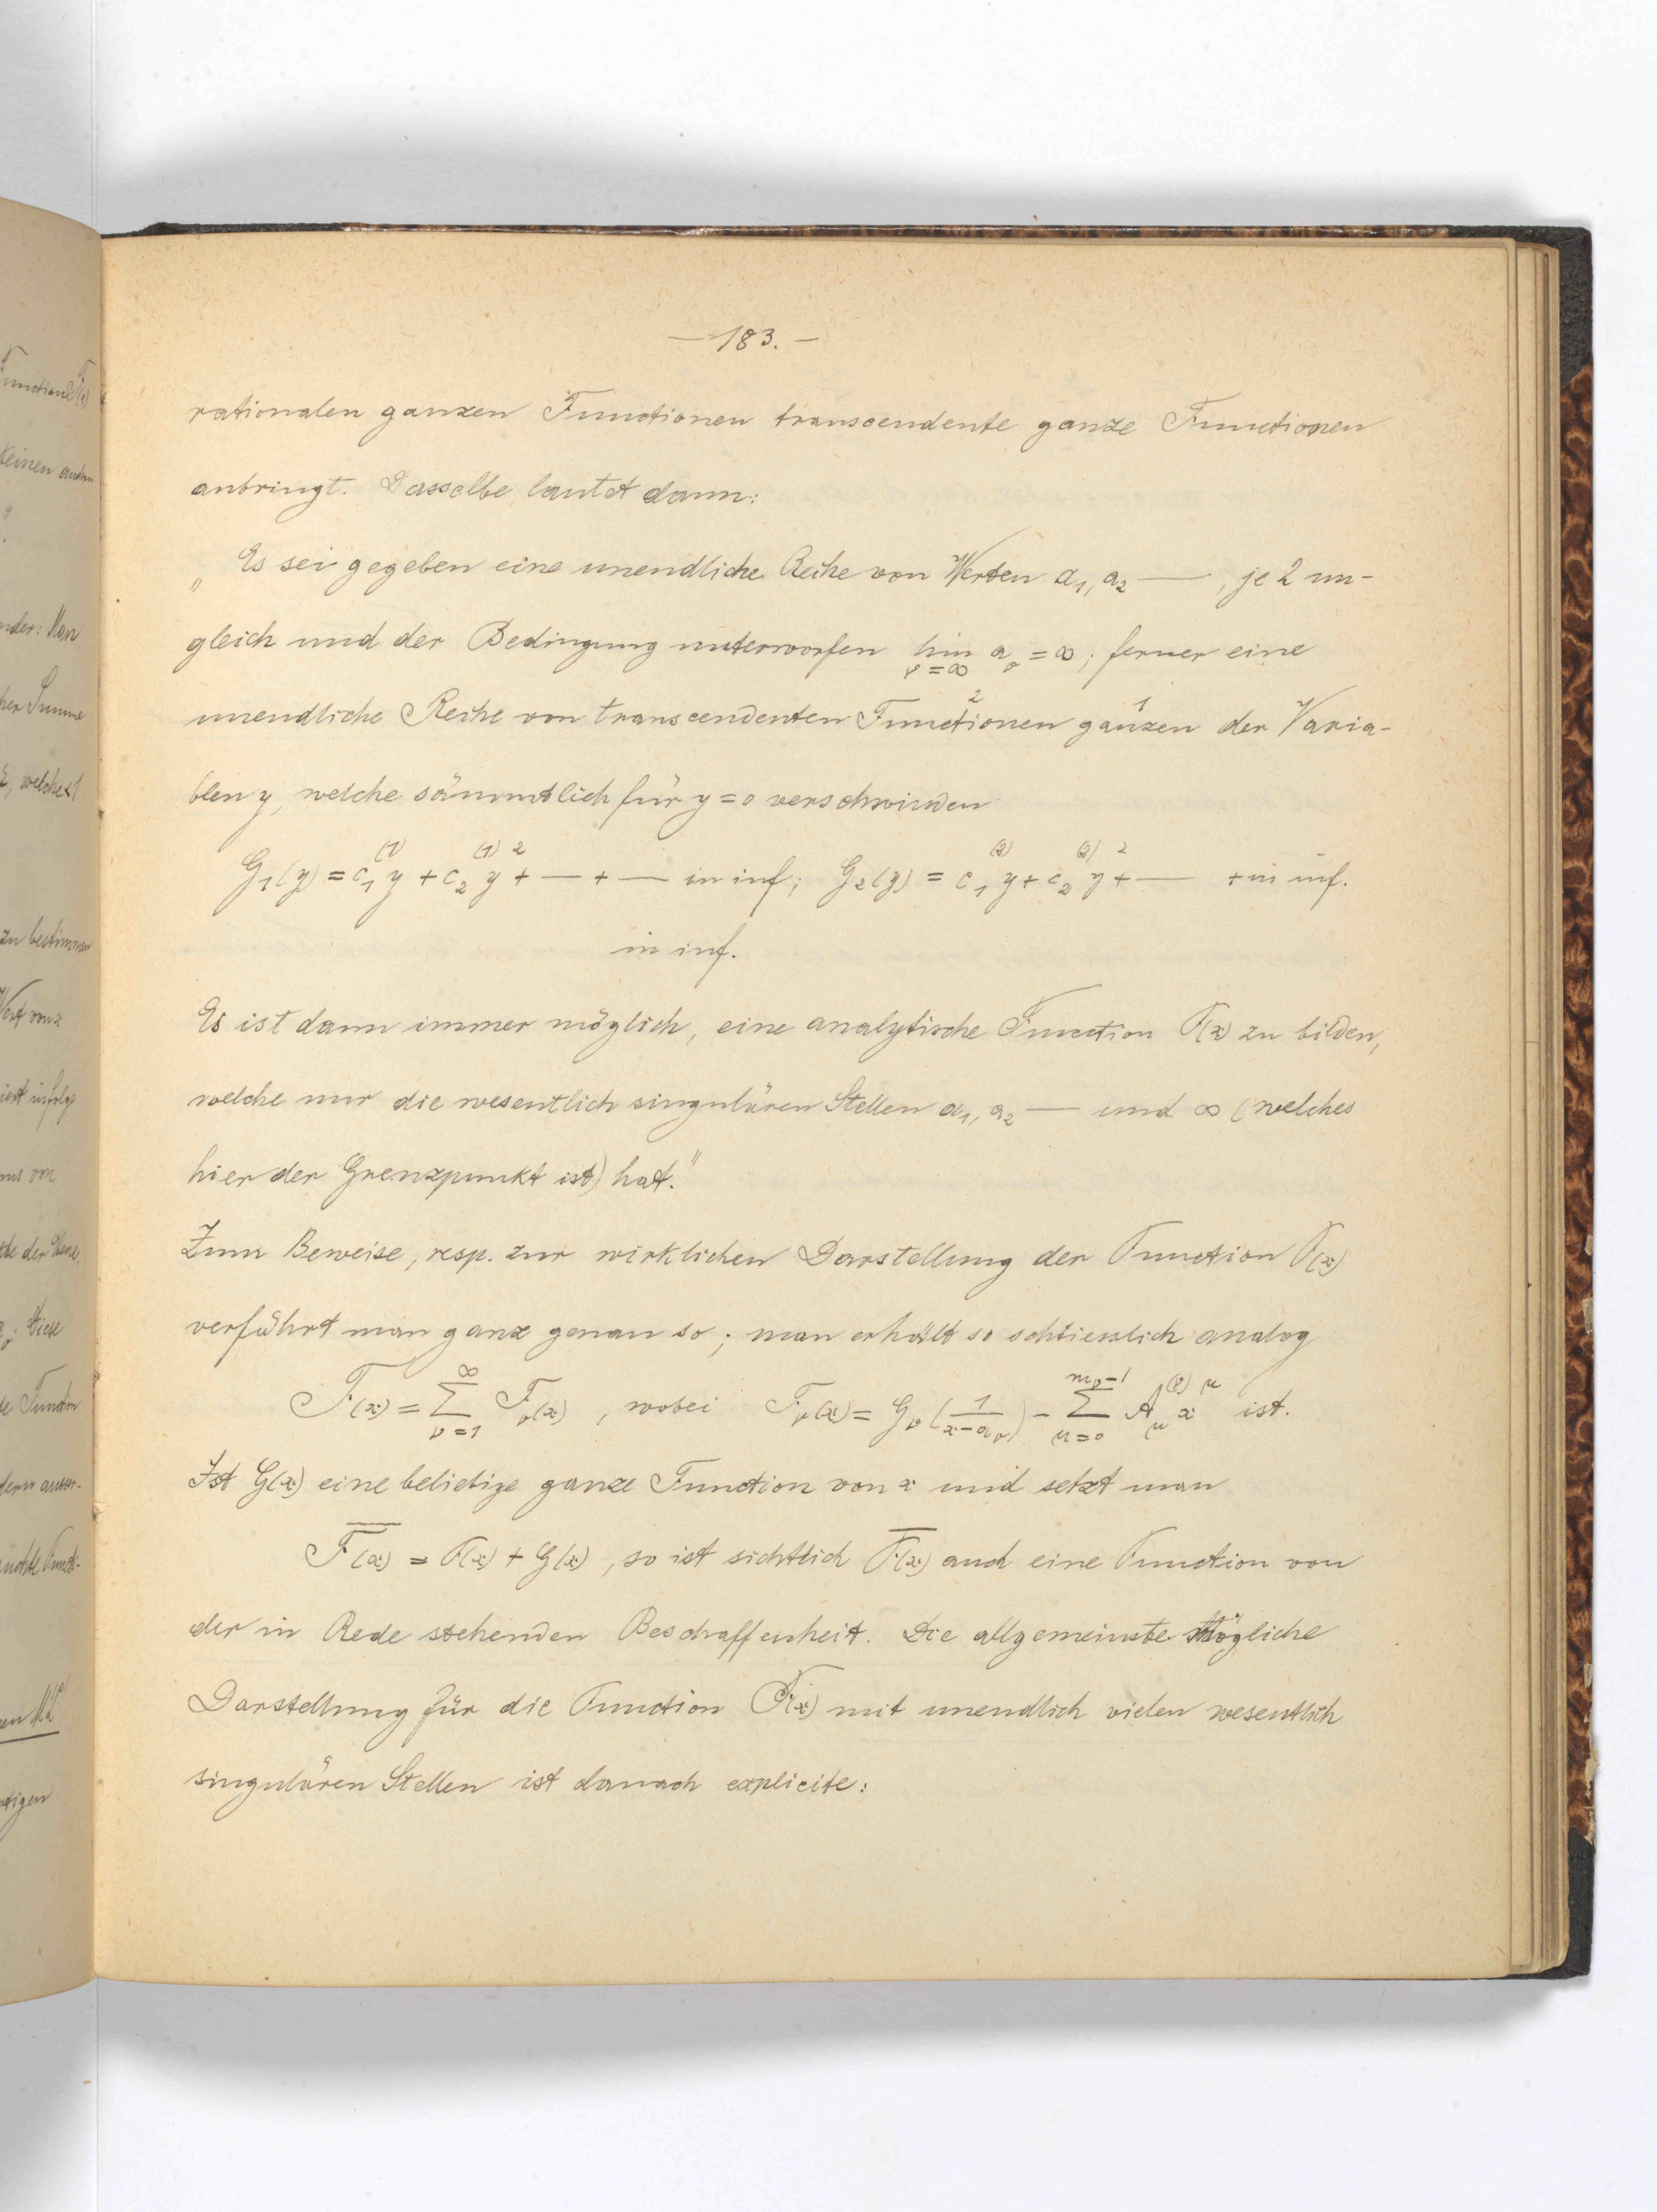 —183.—
rationalen ganzen Functionen transcendente ganze Functionen
anbringt. Dasselbe lautet dann:
„Es sei gegeben eine unendliche Reihe von Werten a₁, a₂ ——, je 2 un-
gleich und der Bedingung unterworfen lim_{ν=∞} a_ν = ∞; ferner eine
unendliche Reihe von transcendenten Functionen² ganzen¹ der Varia-
blen y, welche sämmtlich für y=0 verschwinden
G₁(y) = c₁⁽¹⁾y + c₂⁽¹⁾y² + — + — in inf; G₂(y) = c₁⁽²⁾y + c₂⁽²⁾y² + — + in inf.
in inf.
Es ist dann immer möglich, eine analytische Function F(x) zu bilden,
welche nur die wesentlich singulären Stellen a₁, a₂ — und ∞ (welches
hier der Grenzpunkt ist) hat."
Zum Beweise, resp. zur wirklichen Darstellung der Function F(x)
verfährt man ganz genau so; man erhält so schliesslich analog
F(x) = ∑_{ν=1}^{∞} F_ν(x), wobei F_ν(x) = G_ν(1/(x−a_ν)) − ∑_{μ=0}^{m_ν−1} A_μ^{(ν)} x^μ ist.
Ist G(x) eine beliebige ganze Function von x und setzt man
F̅(x) = F(x) + G(x), so ist sichtlich F̅(x) auch eine Function von
der in Rede stehenden Beschaffenheit. Die allgemeinste mögliche
Darstellung für die Function F(x) mit unendlich vielen wesentlich
singulären Stellen ist danach explicite: